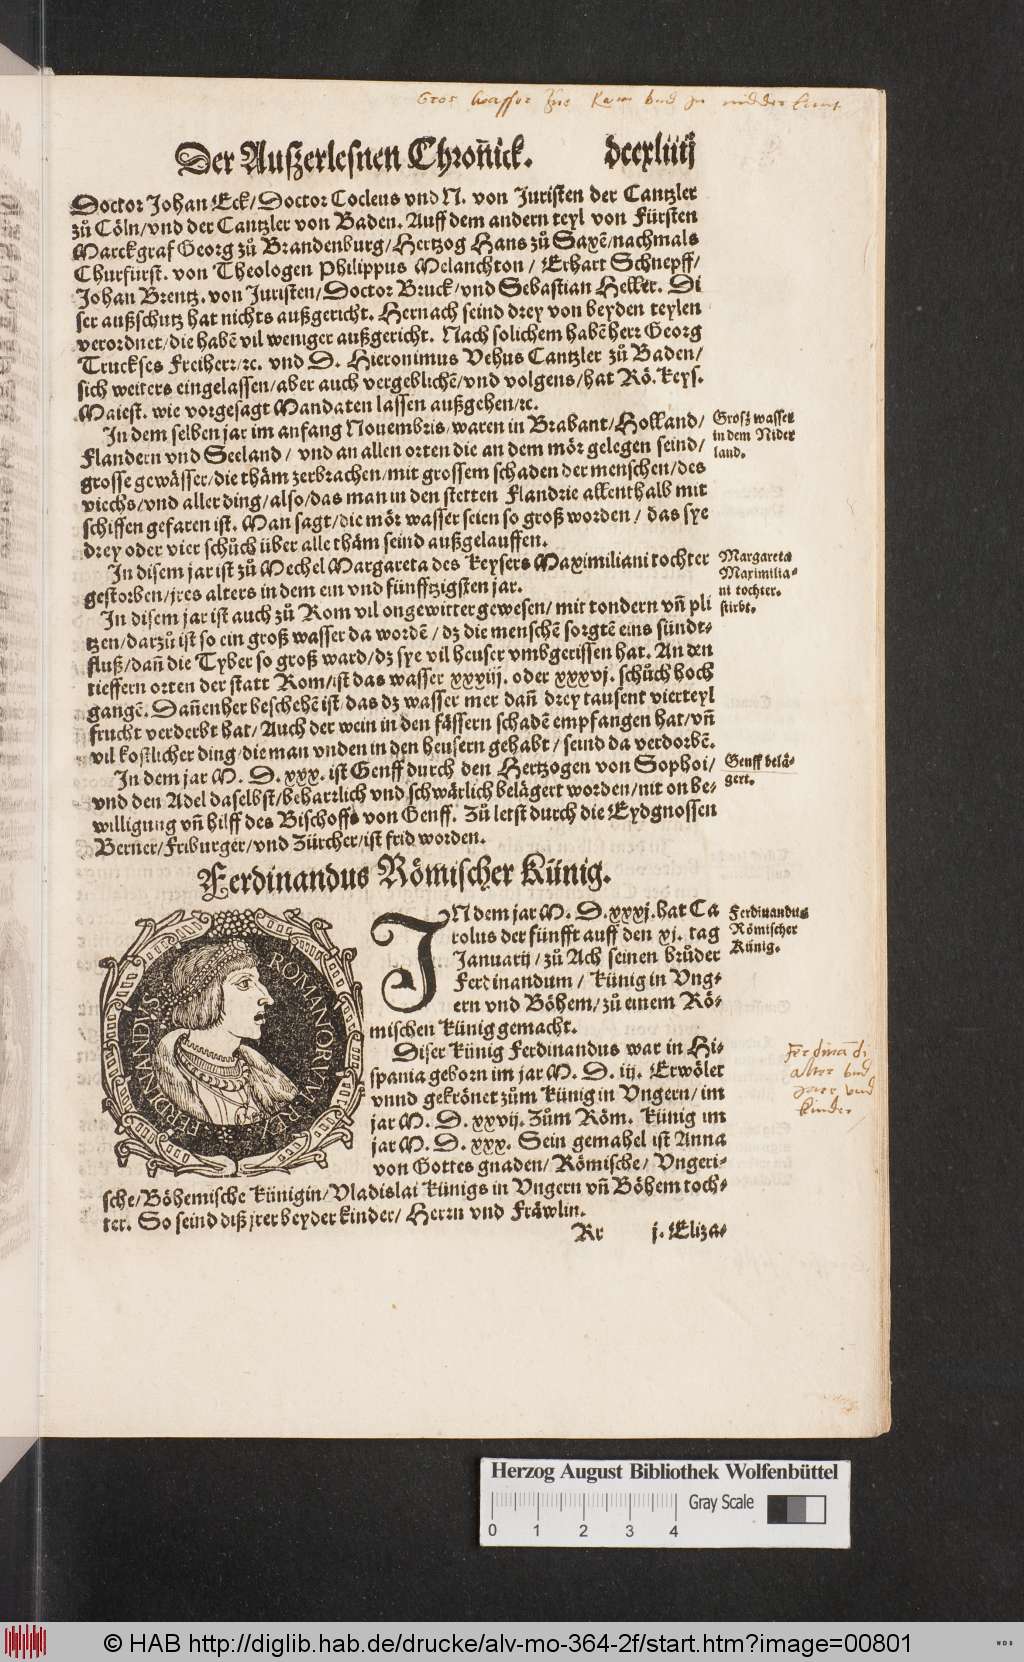 Gros wasser
Der Außzerlesnen Chroñick. dccxliiij
Doctor Johan Eck/Doctor Cocleus vnd N. von Juristen der Cantzler
zů Cöln/vnd der Cantzler von Baden. Auff dem andern teyl von Fürsten
Marckgraf Georg zů Brandenburg/Hertzog Hans zů Saxẽ/nachmals
Churfürst. von Theologen Philippus Melanchton/ Erhart Schnepff/
Johan Brentz. von Juristen/Doctor Bruck/vnd Sebastian Heller. Di
ser außschutz hat nichts außgericht. Hernach seind drey von beyden teylen
verordnet/die habẽ vil weniger außgericht. Nach solichem habẽ herr Georg
Truckses Freiherr/ꝛc. vnd D. Hieronimus Vehus Cantzler zů Baden/
sich weiters eingelassen/aber auch vergeblichẽ/vnd volgens/hat Rö. keys.
Maiest. wie vorgesagt Mandaten lassen außgehen/ꝛc.
In dem selben jar im anfang Nouembris/waren in Brabant/Holland/
Flandern vnd Seeland/ vnd an allen orten die an dem mör gelegen seind/
grosse gewässer/die thäm zerbrachen/mit grossem schaden der menschen/des
viechs/vnd aller ding/also/das man in den stetten Flandrie allenthalb mit
schiffen gefaren ist. Man sagt/die mör wasser seien so groß worden/ das sye
drey oder vier schůch über alle thäm seind außgelauffen.
Grosz wasser
in dem Nider
land.
In disem jar ist zů Mechel Margareta des keysers Maximiliani tochter
gestorben/jres alters in dem ein vnd fünfftzigsten jar.
Margareta
Maximilia-
ni tochter.
stirbt.
In disem jar ist auch zů Rom vil ongewitter gewesen/ mit tondern vñ pli
tzen/darzů ist so ein groß wasser da wordẽ/ dz die menschẽ sorgtẽ eins sündt-
fluß/dañ die Tyber so groß ward/dz sye vil heuser vmbgerissen hat. An den
tieffern orten der statt Rom/ist das wasser xxxiij. oder xxxvj. schůch hoch
gangẽ. Dañenher beschehẽ ist/das dz wasser mer dañ drey tausent vierteyl
frucht verderbt hat/Auch der wein in den fässern schadẽ empfangen hat/vñ
vil kostlicher ding/die man vnden in den heusern gehabt/ seind da verdorbẽ.
In dem jar M. D. xxx. ist Genff durch den Hertzogen von Sophoi/
vnd den Adel daselbst/beharrlich vnd schwärlich belägert worden/mit on be-
willigung vñ hilff des Bischoffs von Genff. Zů letst durch die Eydgnossen
Berner/Friburger/vnd Zürcher/ist frid worden.
Genff belä-
gert.
Ferdinandus Römischer Künig.
FERDINANDVS ROMANORVM REX
IN dem jar M. D. xxxj. hat Ca
rolus der fünfft auff den xj. tag
Januarij/ zů Ach seinen brůder
Ferdinandum/ künig in Vng-
ern vnd Böhem/zů einem Rö-
mischen künig gemacht.
Ferdinandus
Römischer
Künig.
Diser künig Ferdinandus war in Hi-
spania geborn im jar M. D. iij. Erwölet
vnnd gekrönet zům künig in Vngern/im
jar M. D. xxvij. Zům Röm. künig im
jar M. D. xxx. Sein gemahel ist Anna
von Gottes gnaden/ Römische/ Vngeri-
sche/Böhemische künigin/Vladislai künigs in Vngern vñ Böhem toch-
ter. So seind diß jrer beyder kinder/ Herrn vnd Fräwlin.
Ferdinandi
alter vnd
kinder
Rr j. Eliza-
Herzog August Bibliothek Wolfenbüttel
Gray Scale
0 1 2 3 4
© HAB http://diglib.hab.de/drucke/alv-mo-364-2f/start.htm?image=00801